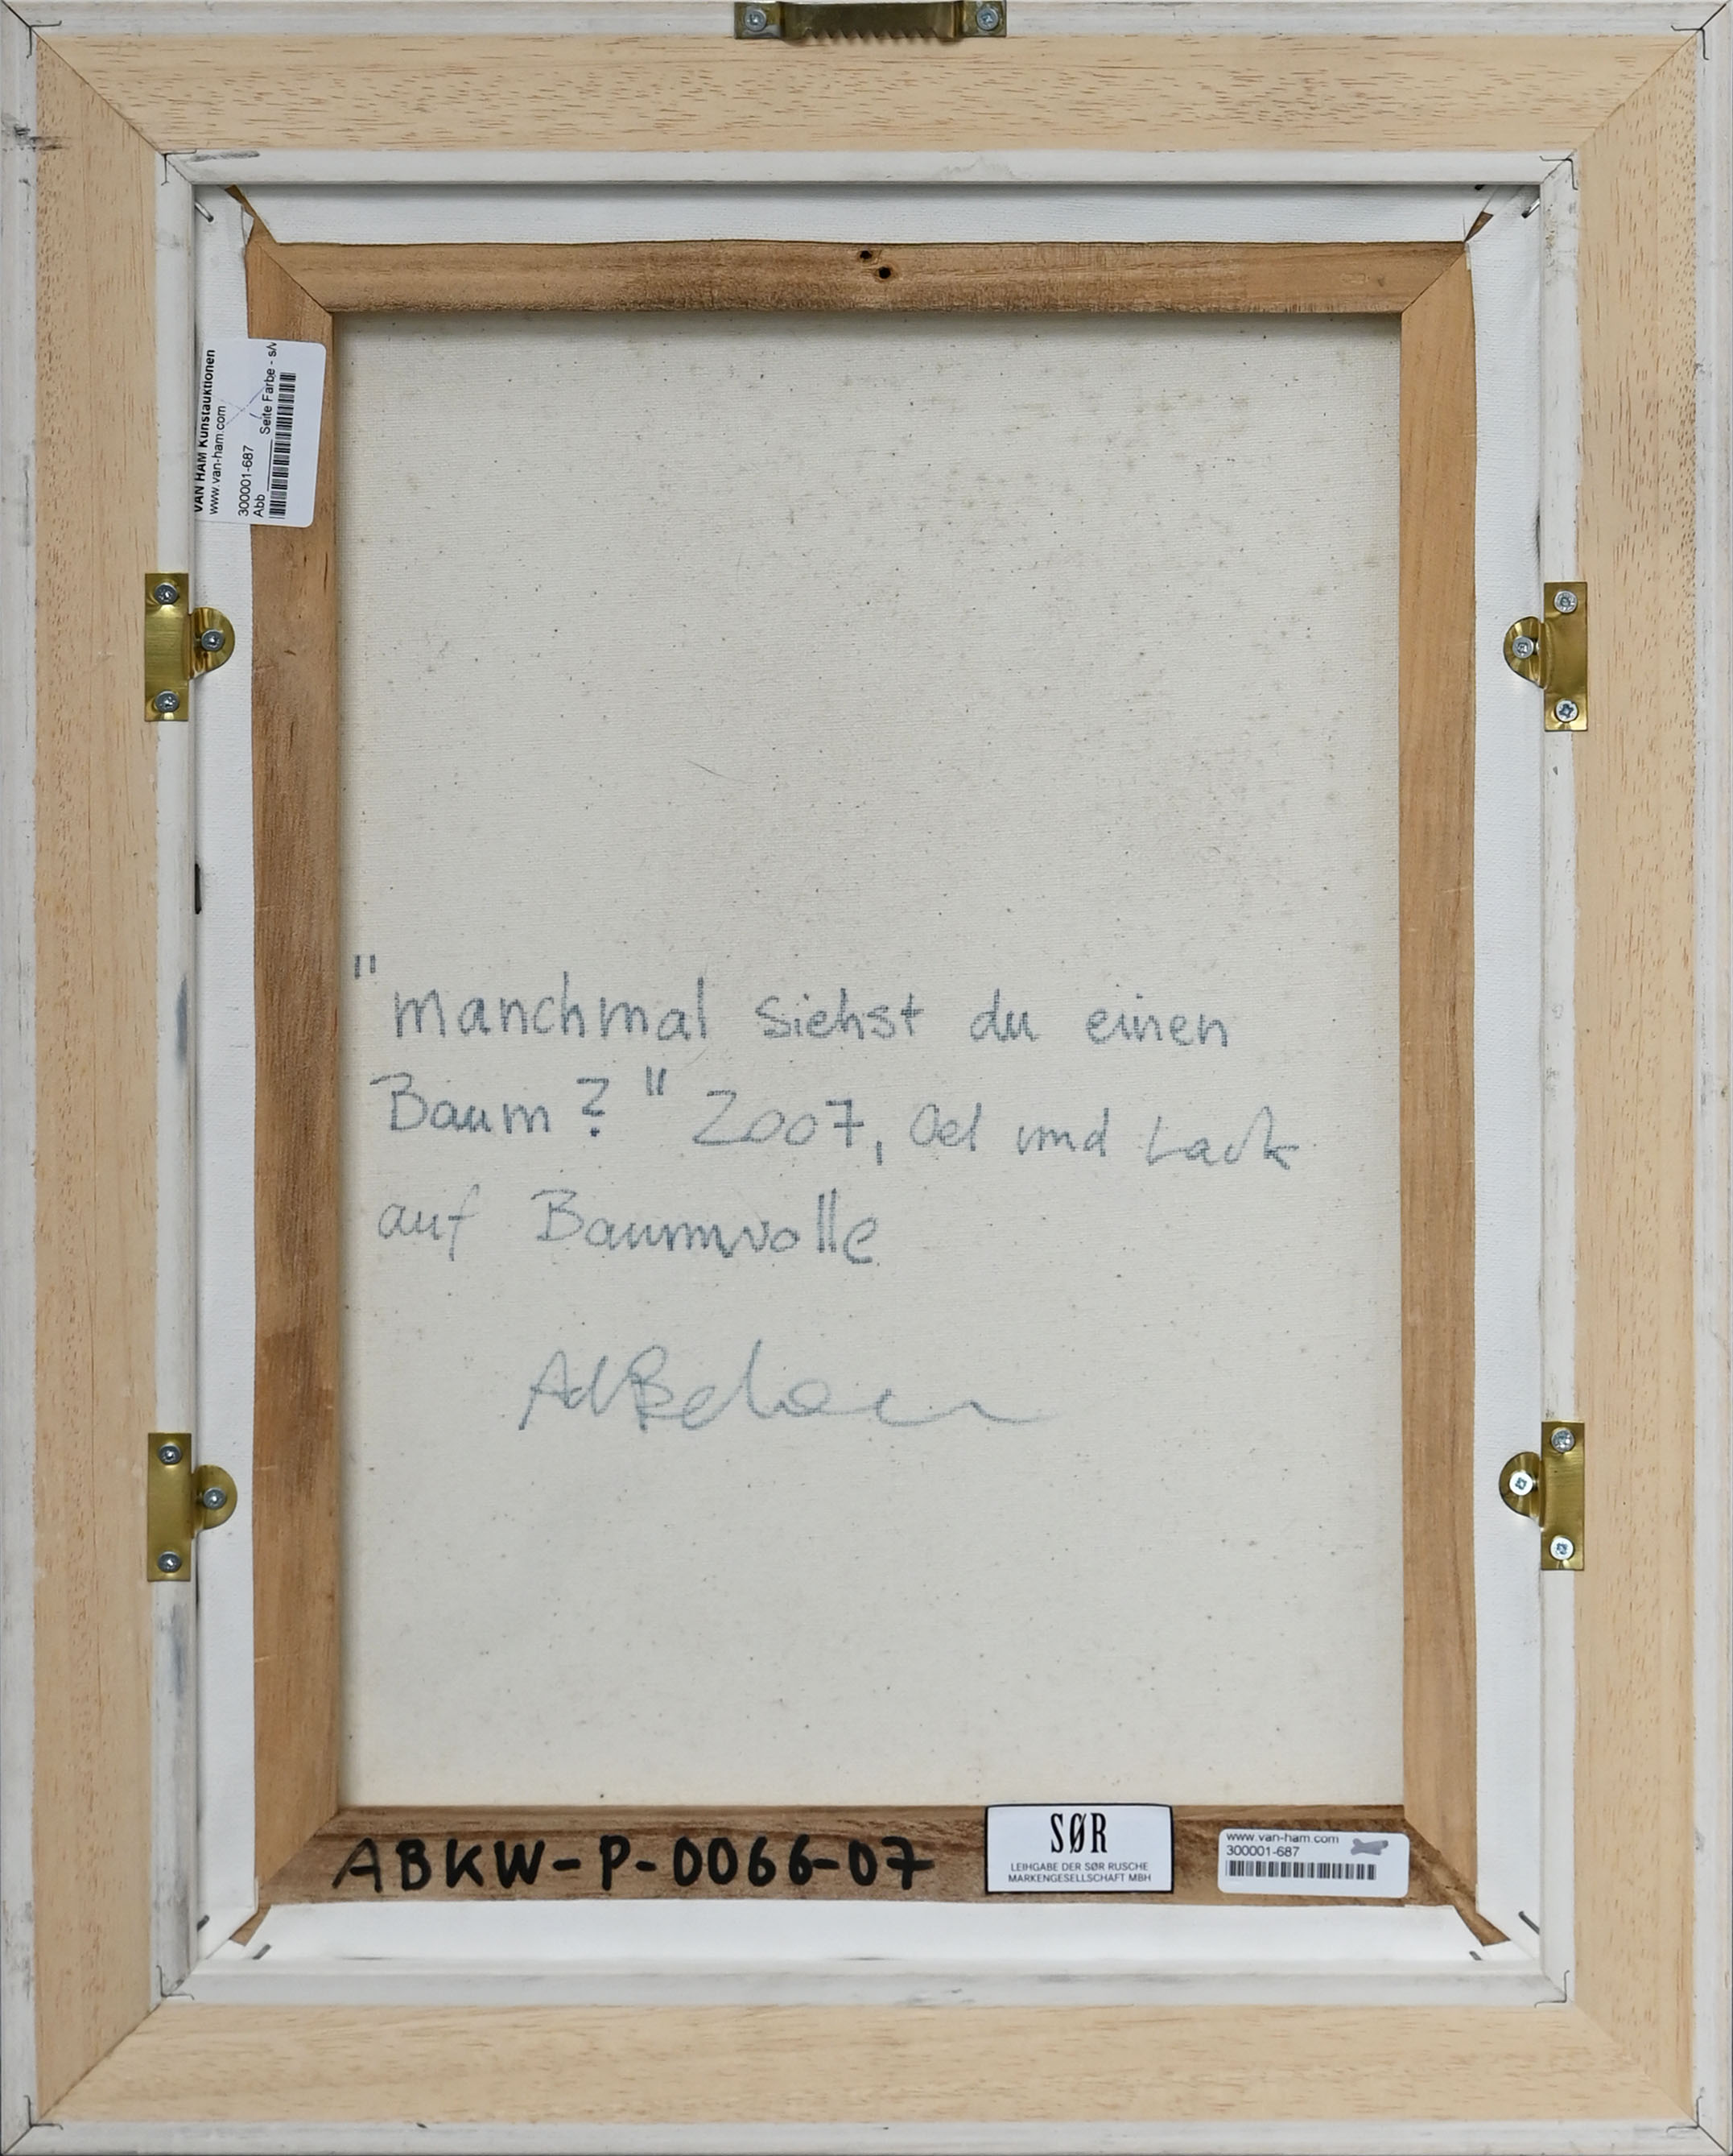 VAN HAM Kunstauktionen
www.van-ham.com
300001-687
Abb Seite Farbe - s/w
"manchmal siehst du einen
Baum?" 2007, Oel und Lack
auf Baumwolle
ABKW-P-0066-07
SØR
LEIHGABE DER SØR RUSCHE
MARKENGESELLSCHAFT MBH
www.van-ham.com
300001-687